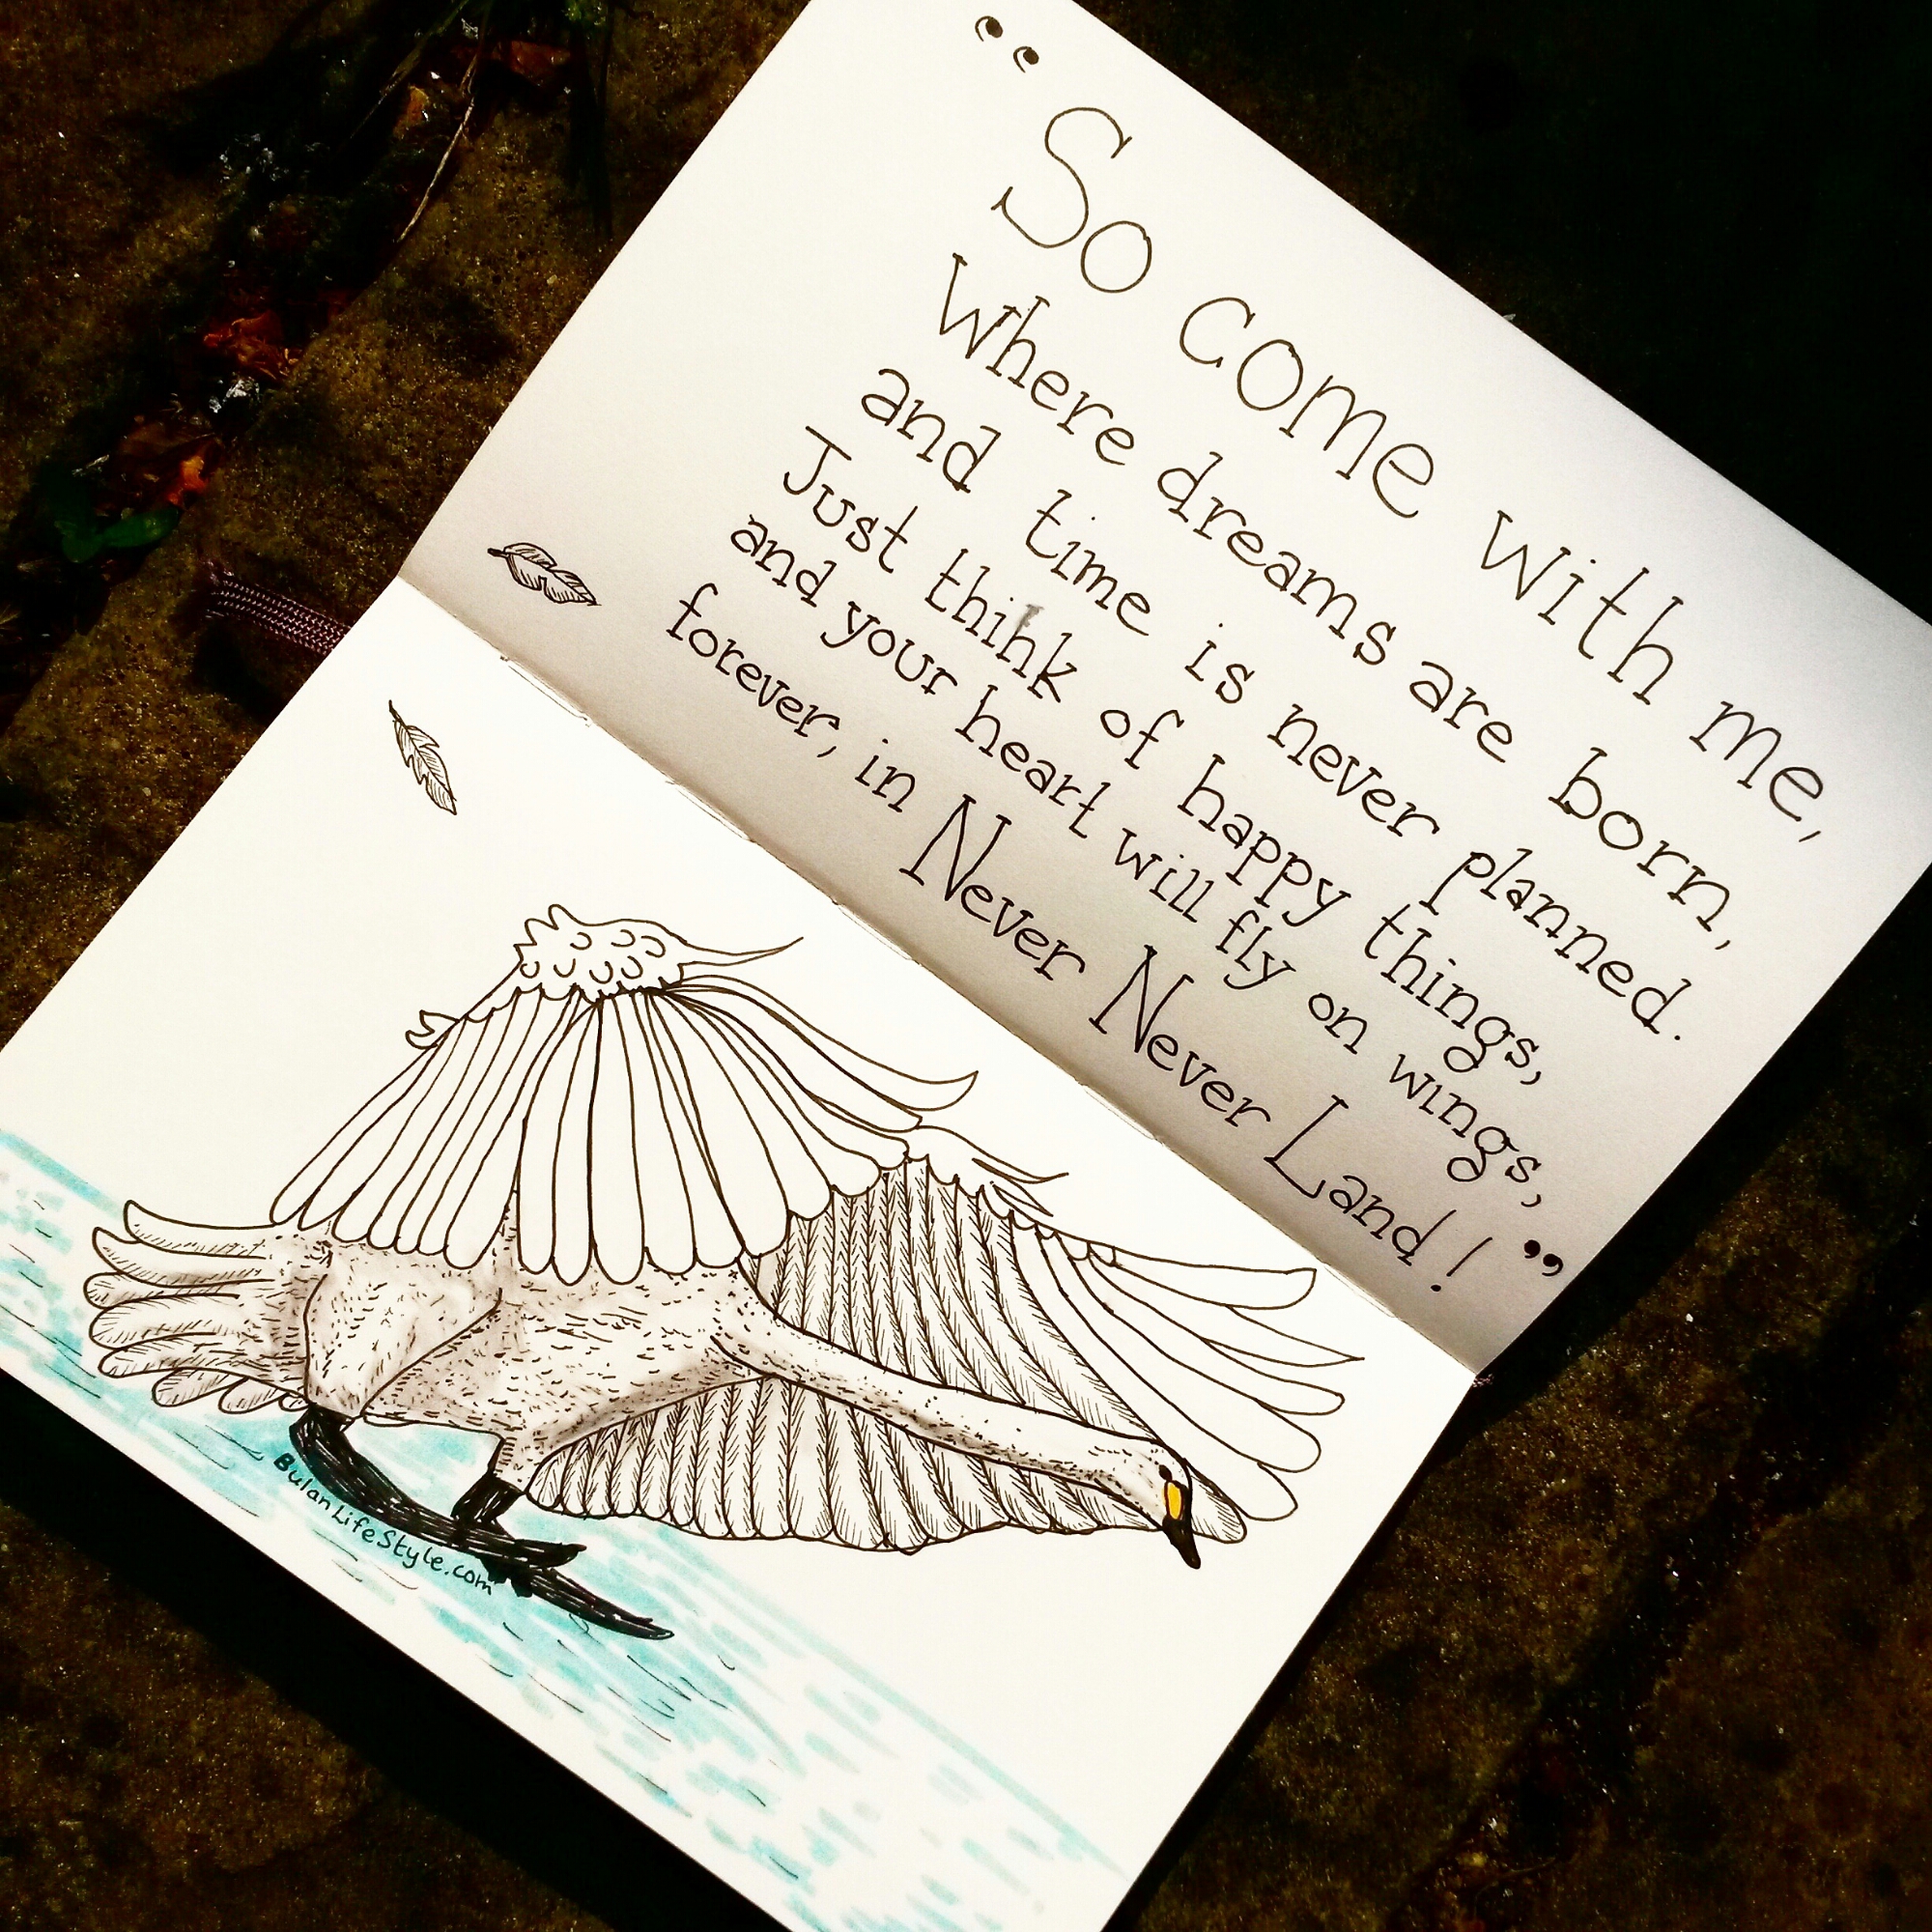 “So come with me,
Where dreams are born,
and time is never planned.
Just think of happy things,
and your heart will fly on wings,
forever, in Never Never Land!”
BulanLifeStyle.com